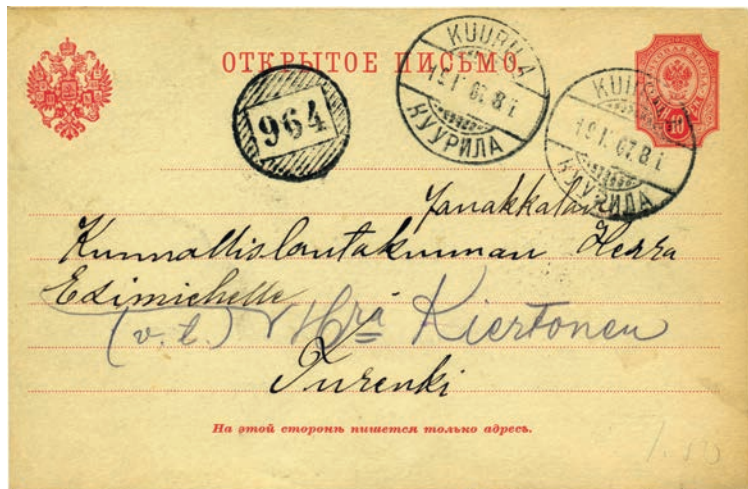 ОТКРЫТОЕ ПИСЬМО.
KUURILA
19.I.07.8 i.
КУУРИЛА
KUURILA
19.I.07.8 i.
КУУРИЛА
10
964
Janakkalan
Kunnallislautakunnan Herra
Esimiehelle
(v. t.) Hra Kiertonen
Turenki
На этой сторонѣ пишется только адресъ.